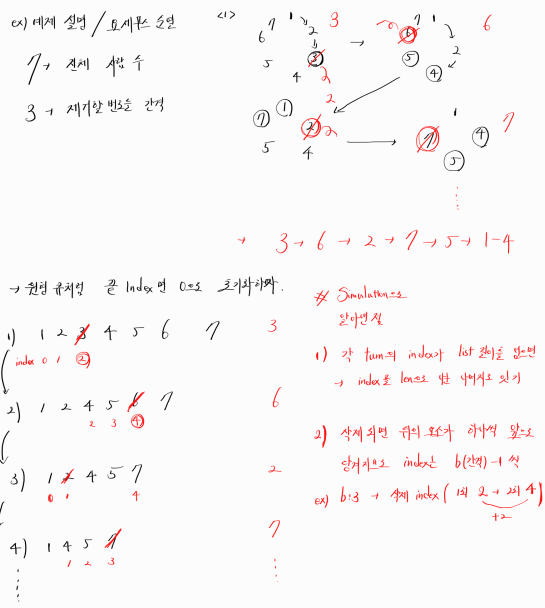 ex) 예제 설명 / 요세푸스 순열
7 → 전체 사람 수
3 → 제거할 번호들 간격
<1>
1
2
3
4
5
6
7
3
2
→
7
1
6
2
5
4
2
6
1
7
2
2
2
5
4
1
7
4
5
7
→ 3 → 6 → 2 → 7 → 5 → 1 - 4
→ 원형 큐처럼 끝 Index면 0으로 초기화하자.
1) 1 2 3 4 5 6 7 3
index 0 1 2
2) 1 2 4 5 6 7 6
2 3 4
3) 1 2 4 5 7 2
0 1 4
4) 1 4 5 7 7
1 2 3
# Simulation으로
알아낸 점
1) 각 turn의 index가 list 길이를 넘으면
→ index를 len으로 나머지로 잇기
2) 삭제 되면 뒤의 요소가 하나씩 앞으로
당겨지므로 index는 b(간격)-1 씩
ex) b:3 → 삭제 index ( 1회 2 → 2회 4 )
+2